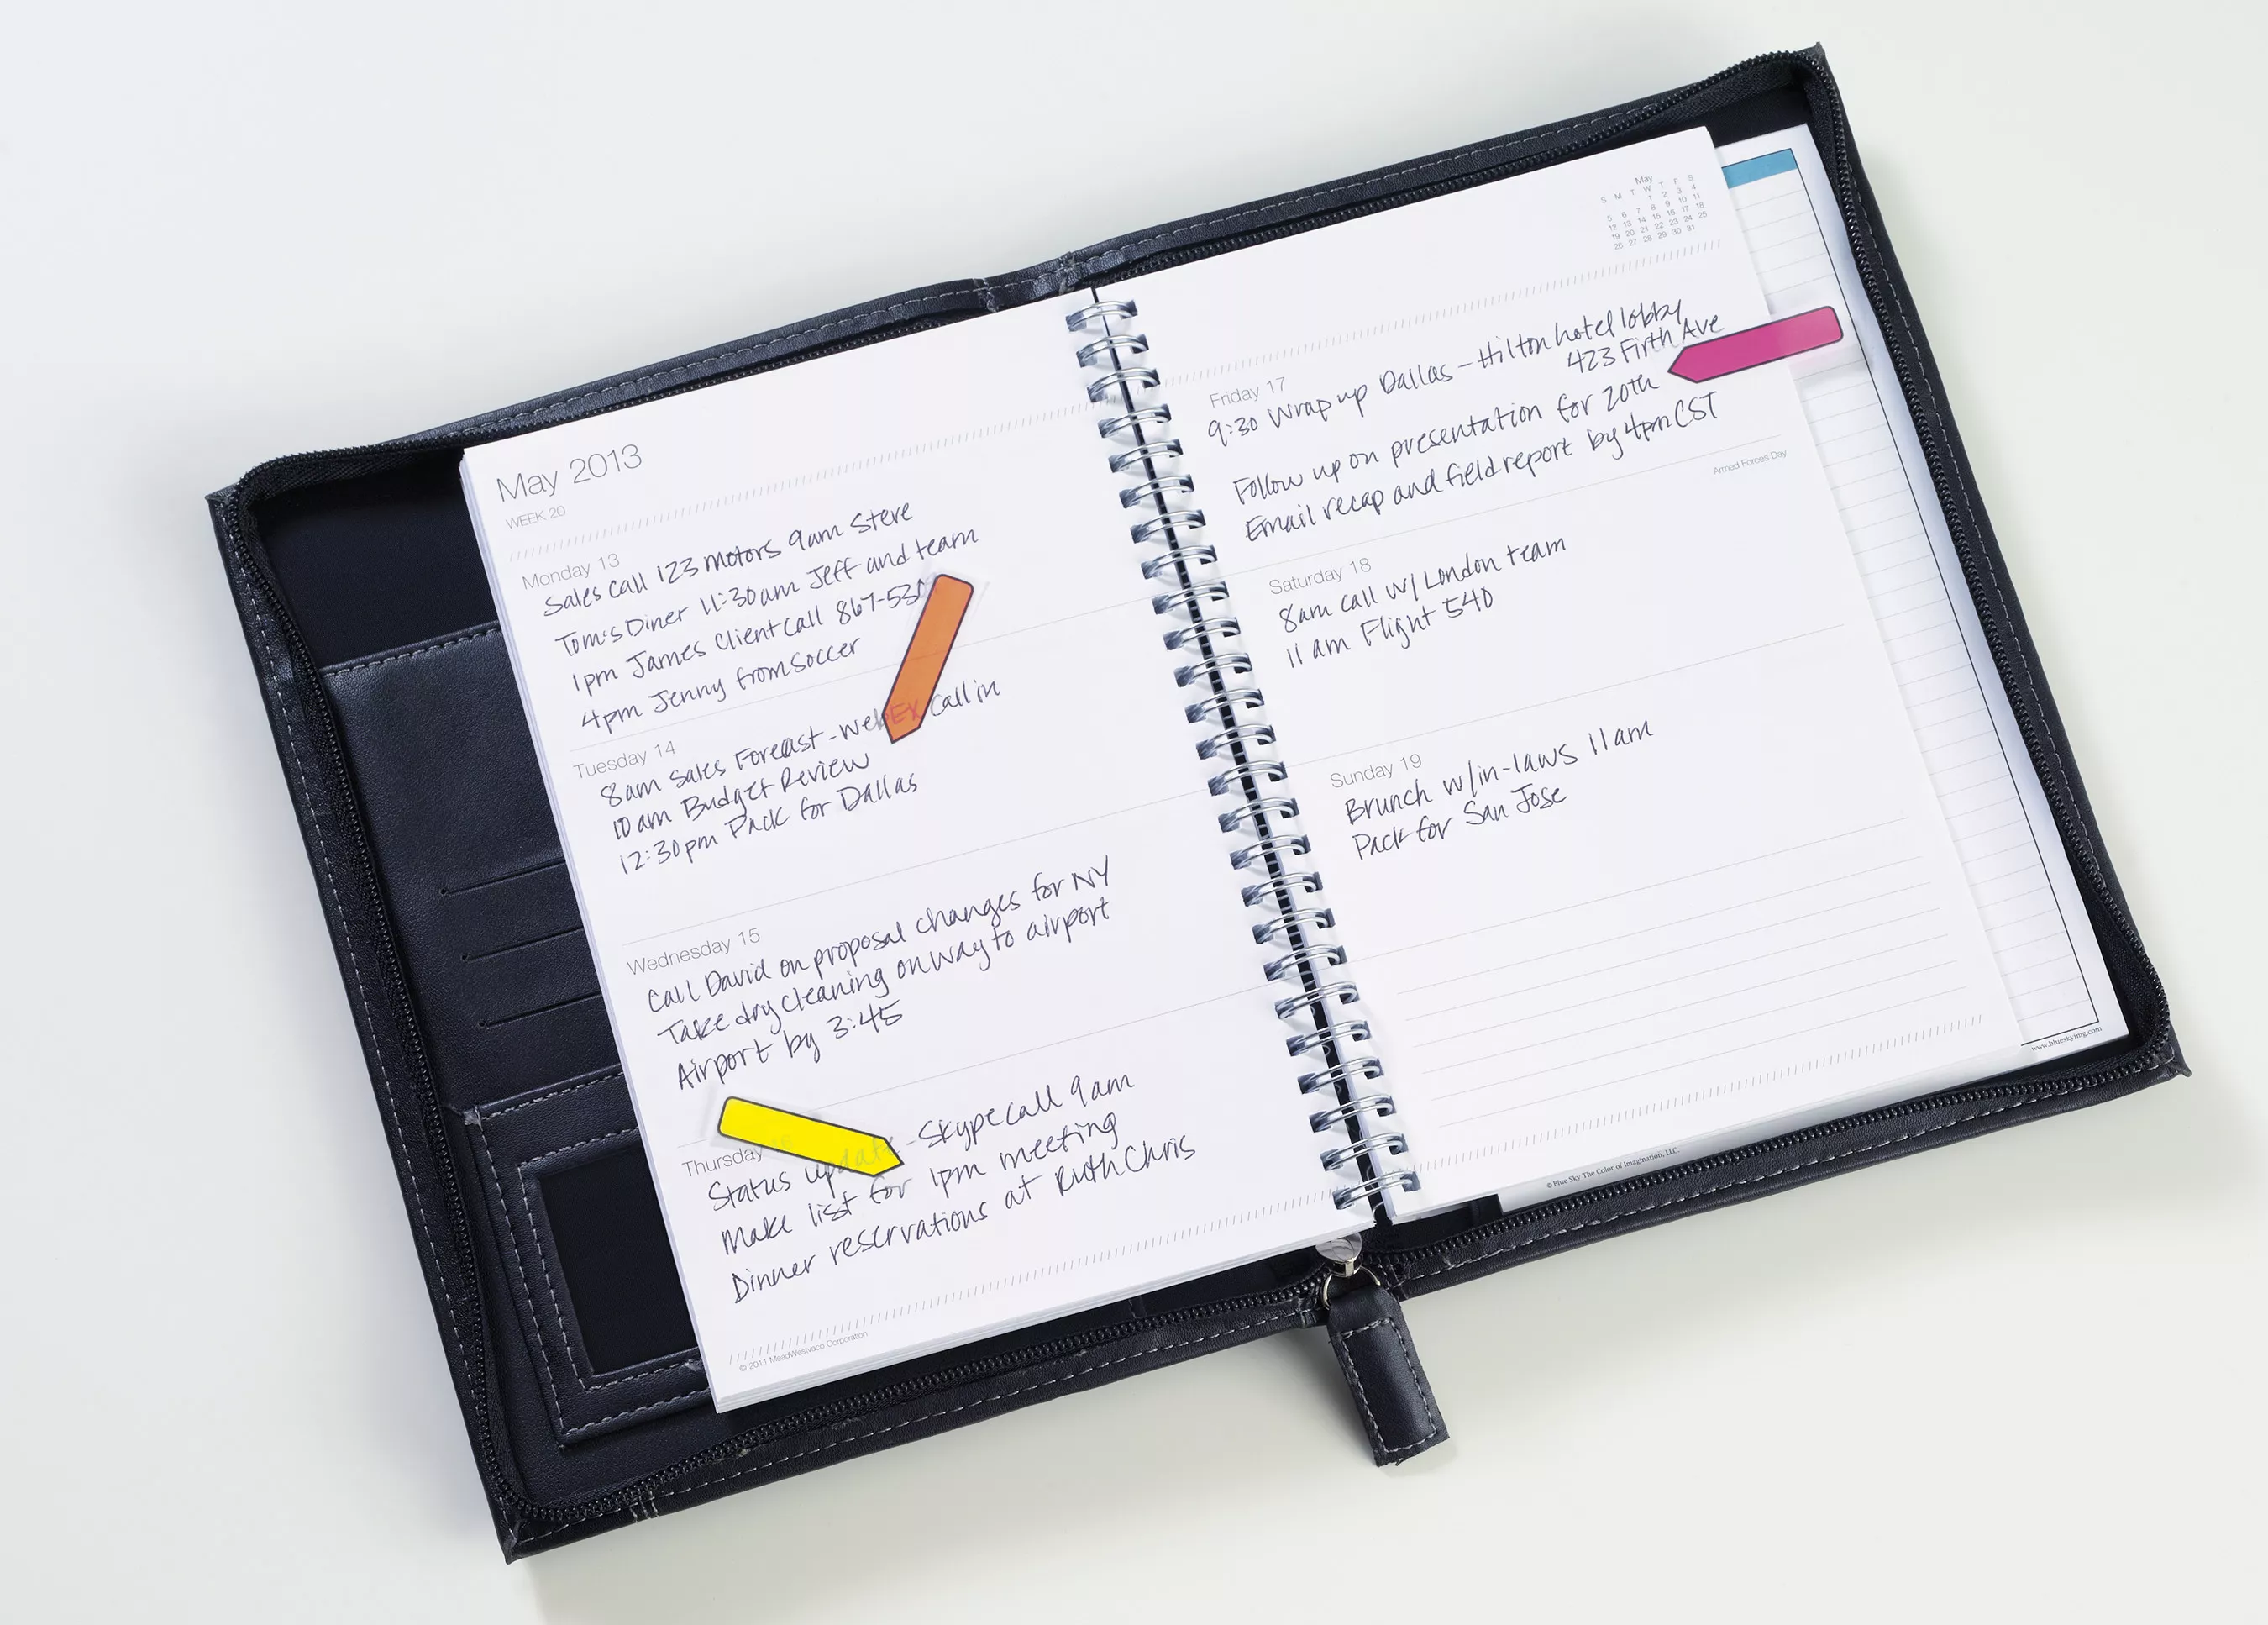 May 2013
WEEK 20
Monday 13
Sales Call 123 motors 9am Steve
Tom's Diner 11:30am Jeff and team
1pm James Client Call 867-530
4pm Jenny from Soccer
Tuesday 14
8am Sales Forecast - WebEx Call in
10am Budget Review
12:30pm Pack for Dallas
Wednesday 15
Call David on proposal changes for NY
Take dry cleaning on way to airport
Airport by 3:45
Thursday
Status update - Skype Call 9am
Make list for 1pm meeting
Dinner reservations at Ruth Chris
© 2011 MeadWestvaco Corporation
May
S M T W T F S
1 2 3 4
5 6 7 8 9 10 11
12 13 14 15 16 17 18
19 20 21 22 23 24 25
26 27 28 29 30 31
Friday 17
9:30 Wrap up Dallas - Hilton hotel lobby
423 Firth Ave
Follow up on presentation for 20th
Email recap and field report by 4pm CST
Armed Forces Day
Saturday 18
8am call w/ London team
11 am Flight 540
Sunday 19
Brunch w/in-laws 11am
Pack for San Jose
www.blueskyimg.com
© Blue Sky The Color of Imagination, LLC.